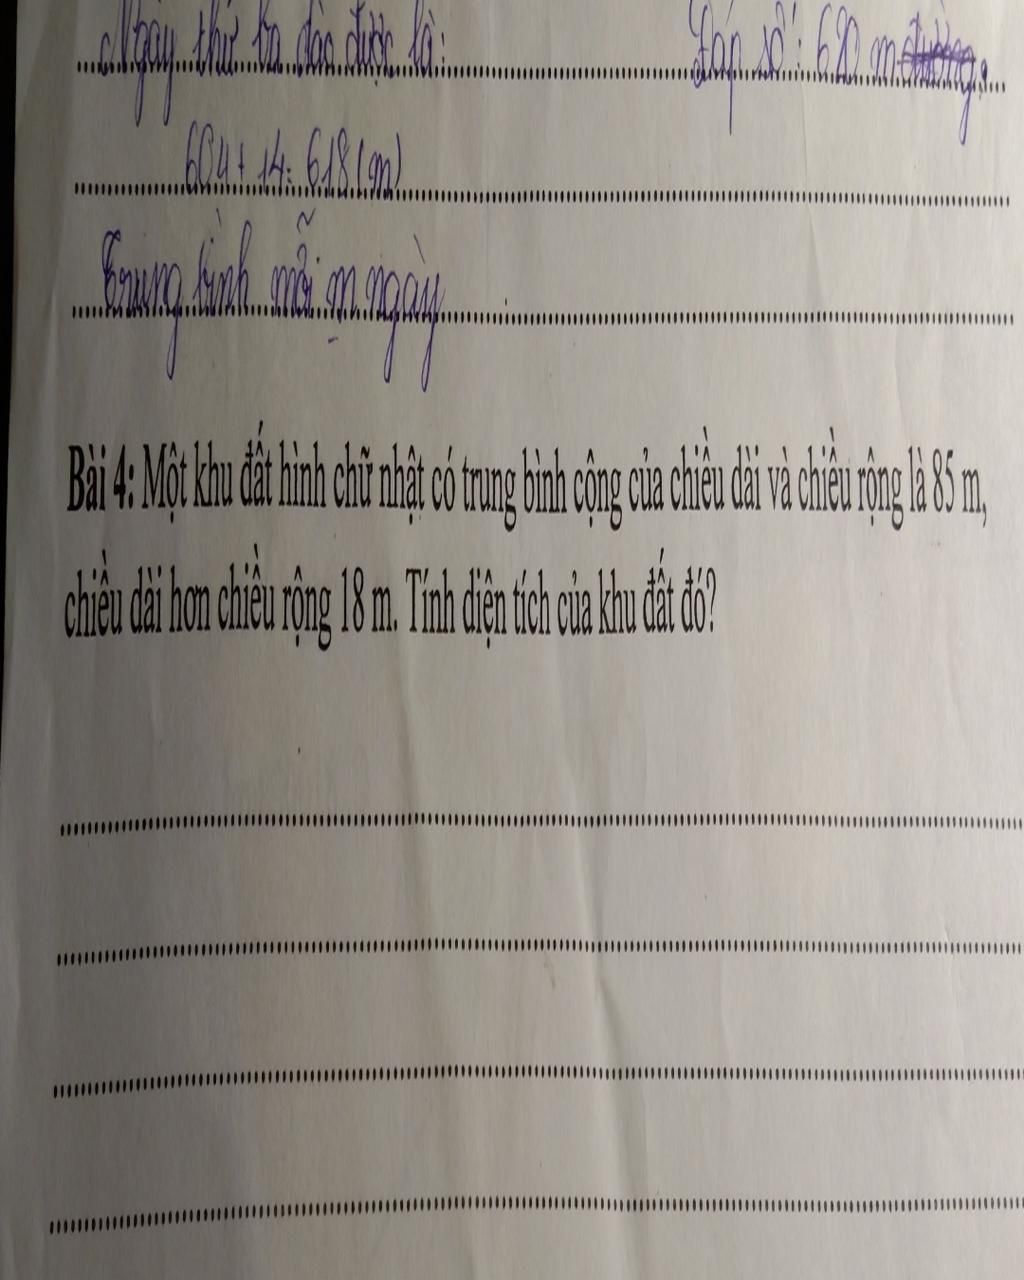 Ngày thứ ba đào được là: Đáp số: 620 m
604 + 14 = 618 (m)
Trung bình mỗi m ngày
Bài 4: Một khu đất hình chữ nhật có trung bình cộng của chiều dài và chiều rộng là 85 m,
chiều dài hơn chiều rộng 18 m. Tính diện tích của khu đất đó?